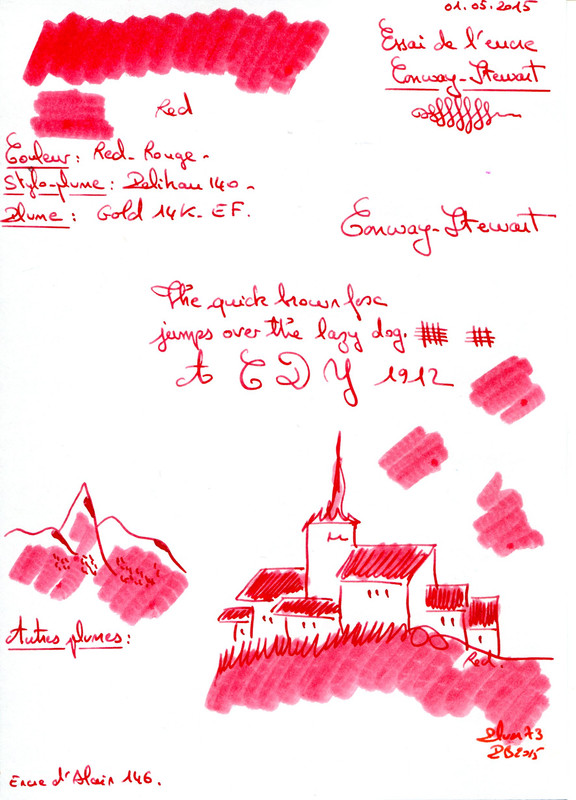 01.05.2015
Essai de l'encre
Conway-Stewart
Red
Couleur: Red-Rouge-
Stylo-plume: Pelikan 140-
Plume: Gold 14K-EF.
Conway-Stewart
The quick brown fox
jumps over the lazy dog.
A C D Y 1912
Autres plumes:
Red.
PB2015
Encre d'Alain 146.